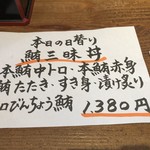 本日の日替り
鮪三昧丼
本鮪中トロ・本鮪赤身
鮪たたき・すき身・漬け炙り
ロびんちょう鮪
1,380円